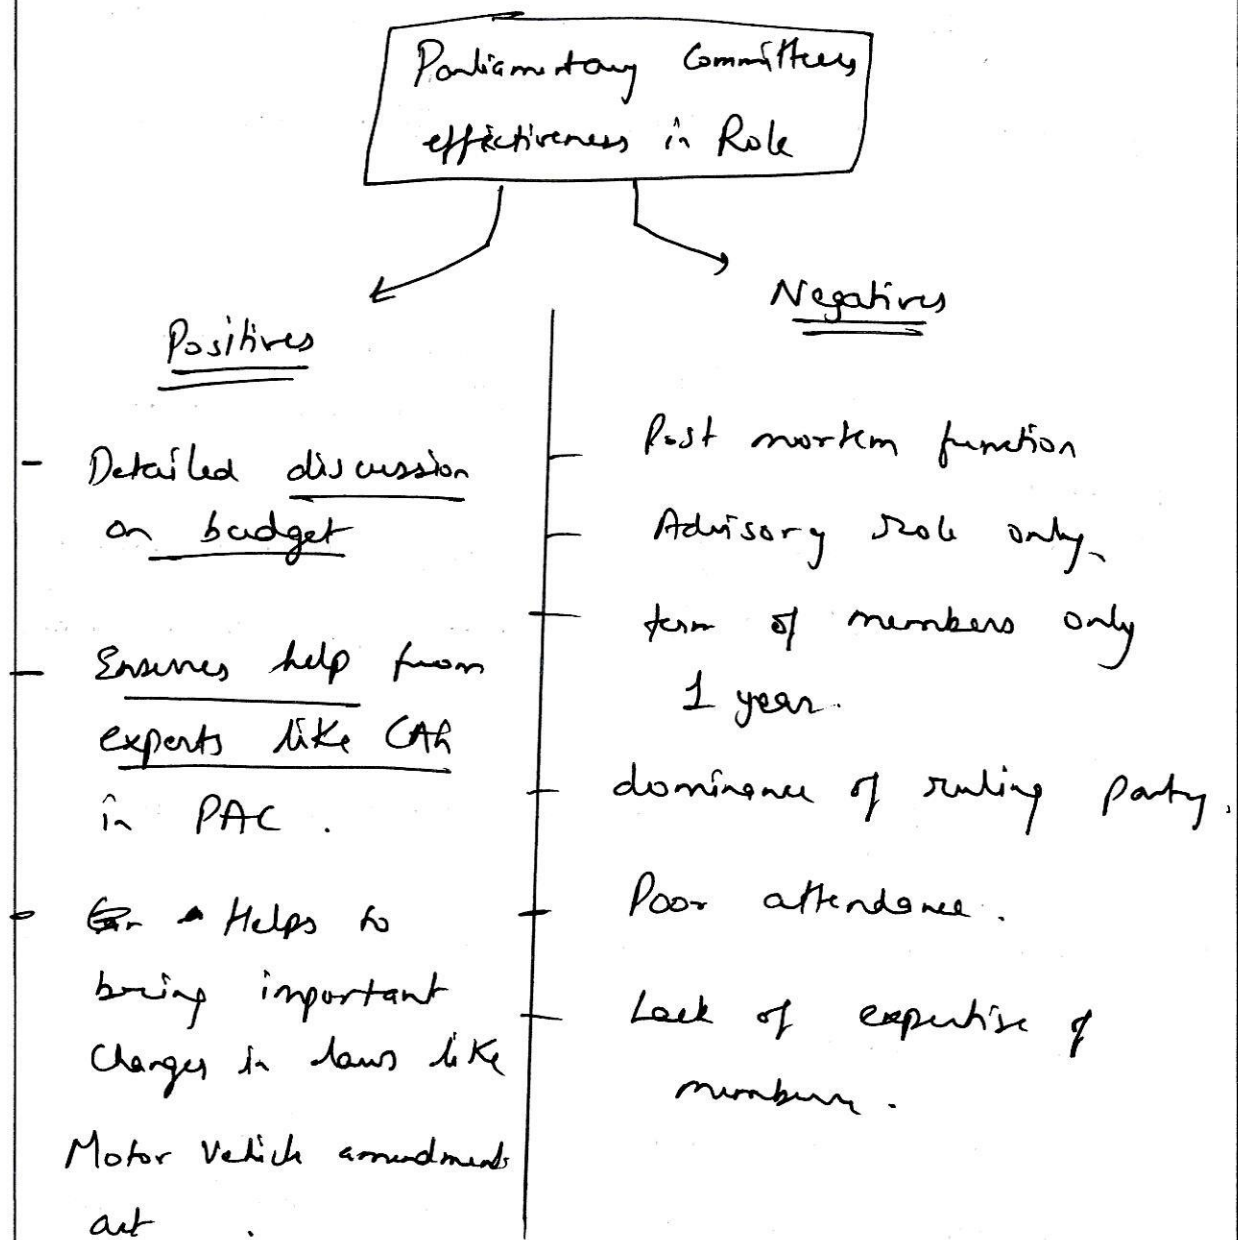 Parliamentary Committees
effectiveness in Role
Positives
- Detailed discussion
on budget
- Ensures help from
experts like CAG
in PAC .
- Helps to
bring important
Changes in laws like
Motor Vehicle amendments
act .
Negatives
- Post mortem function
- Advisory role only
- term of members only
1 year.
- dominance of ruling Party.
- Poor attendance .
- Lack of expertise of
members .